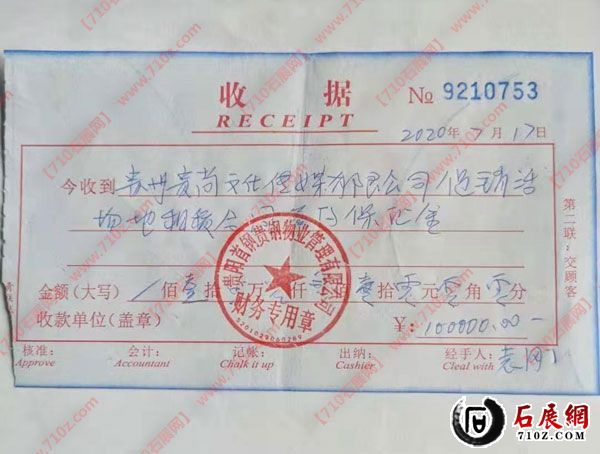 收 据
RECEIPT
№ 9210753
2020年7月17日
今收到 贵州贵尚文化传媒有限公司
场地租赁合同 保证金
贵阳首钢贵钢物业管理有限公司
财务专用章
金额(大写) 佰壹拾 万 仟 拾零元零角零分
收款单位(盖章) ¥:100000.00-
第二联:交顾客
核准: 会计: 记帐: 出纳: 经手人:
Approve Accountant Chalk it up Cashier Cleal with
【710石展网】
www.710z.com
石展網
710Z.COM